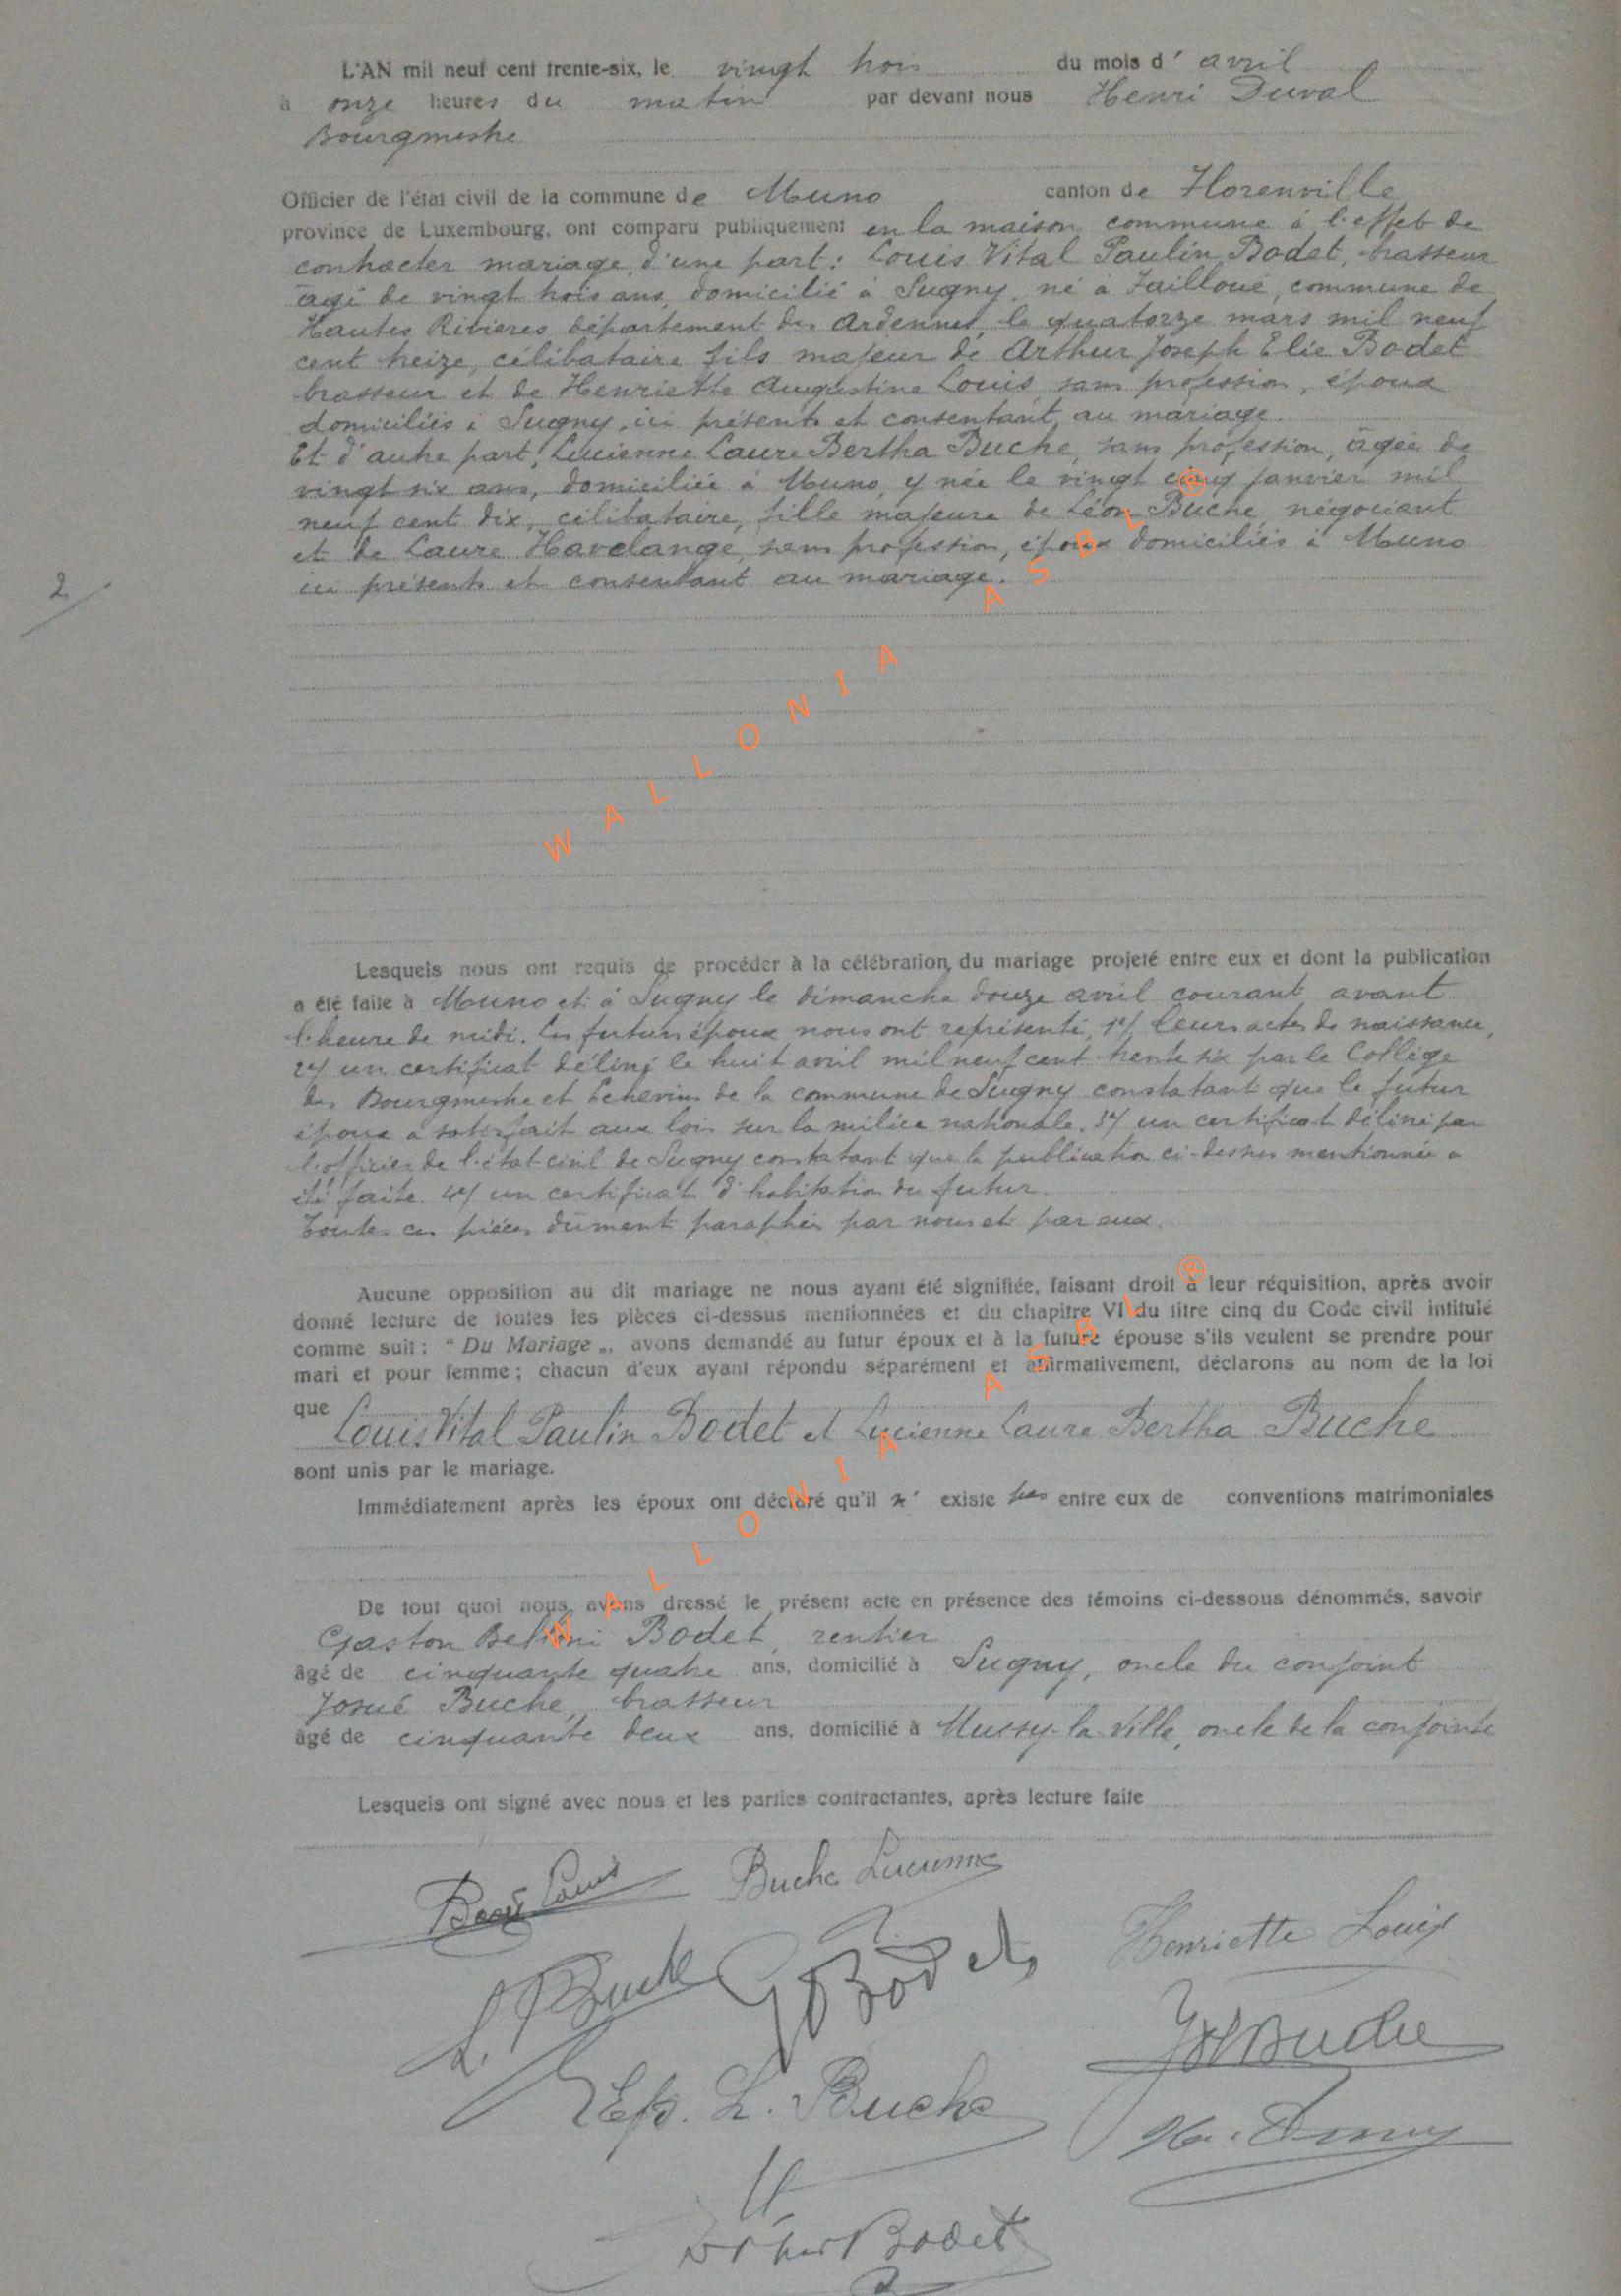 L'AN mil neuf cent trente-six, le vingt trois du mois d' avril
à onze heures du matin par devant nous Henri Duval
Bourgmestre
Officier de l'état civil de la commune de Muno canton de Florenville
province de Luxembourg, ont comparu publiquement en la maison commune à l'effet de
contracter mariage, d'une part: Louis Vital Paulin Bodet, brasseur
âgé de vingt trois ans, domicilié à Sugny, né à Failloué, commune de
Hautes Rivières département des Ardennes le quatorze mars mil neuf
cent treize, célibataire fils majeur de Arthur Joseph Elie Bodet
brasseur et de Henriette Augustine Louis, sans profession, époux
domiciliés à Sugny, ici présents et consentant au mariage.
Et d'autre part, Lucienne Laure Bertha Buche, sans profession, âgée de
vingt six ans, domiciliée à Muno, y née le vingt cinq janvier mil
neuf cent dix, célibataire, fille majeure de Léon Buche, négociant
et de Laure Havelange, sans profession, époux domiciliés à Muno
ici présents et consentant au mariage.
2
WALLONIA ASBL ®
Lesquels nous ont requis de procéder à la célébration du mariage projeté entre eux et dont la publication
a été faite à Muno et à Sugny le dimanche douze avril courant avant
l'heure de midi. Les futurs époux nous ont représenté, 1°/ leurs actes de naissance,
2°/ un certificat délivré le huit avril mil neuf cent trente six par le Collège
des Bourgmestre et Echevins de la commune de Sugny constatant que le futur
époux a satisfait aux lois sur la milice nationale. 3°/ un certificat délivré par
l'officier de l'état-civil de Sugny constatant que la publication ci-dessus mentionnée a
été faite. 4°/ un certificat d'habitation du futur.
Toutes ces pièces dûment paraphées par nous et par eux.
Aucune opposition au dit mariage ne nous ayant été signifiée, faisant droit à leur réquisition, après avoir
donné lecture de toutes les pièces ci-dessus mentionnées et du chapitre VI du titre cinq du Code civil intitulé
comme suit : " Du Mariage „, avons demandé au futur époux et à la future épouse s'ils veulent se prendre pour
mari et pour femme ; chacun d'eux ayant répondu séparément et affirmativement, déclarons au nom de la loi
que Louis Vital Paulin Bodet et Lucienne Laure Bertha Buche
sont unis par le mariage.
Immédiatement après les époux ont déclaré qu'il n' existe pas entre eux de conventions matrimoniales
WALLONIA ASBL ®
De tout quoi nous avons dressé le présent acte en présence des témoins ci-dessous dénommés, savoir
Gaston Bodet, rentier
âgé de cinquante quatre ans, domicilié à Sugny, oncle du conjoint
Josué Buche, brasseur
âgé de cinquante deux ans, domicilié à Mussy-la-Ville, oncle de la conjointe
Lesquels ont signé avec nous et les parties contractantes, après lecture faite
Bodet Louis Buche Lucienne
Henriette Louis
L. Buche G Bodet
Buche
Ep. L. Buche
Bodet